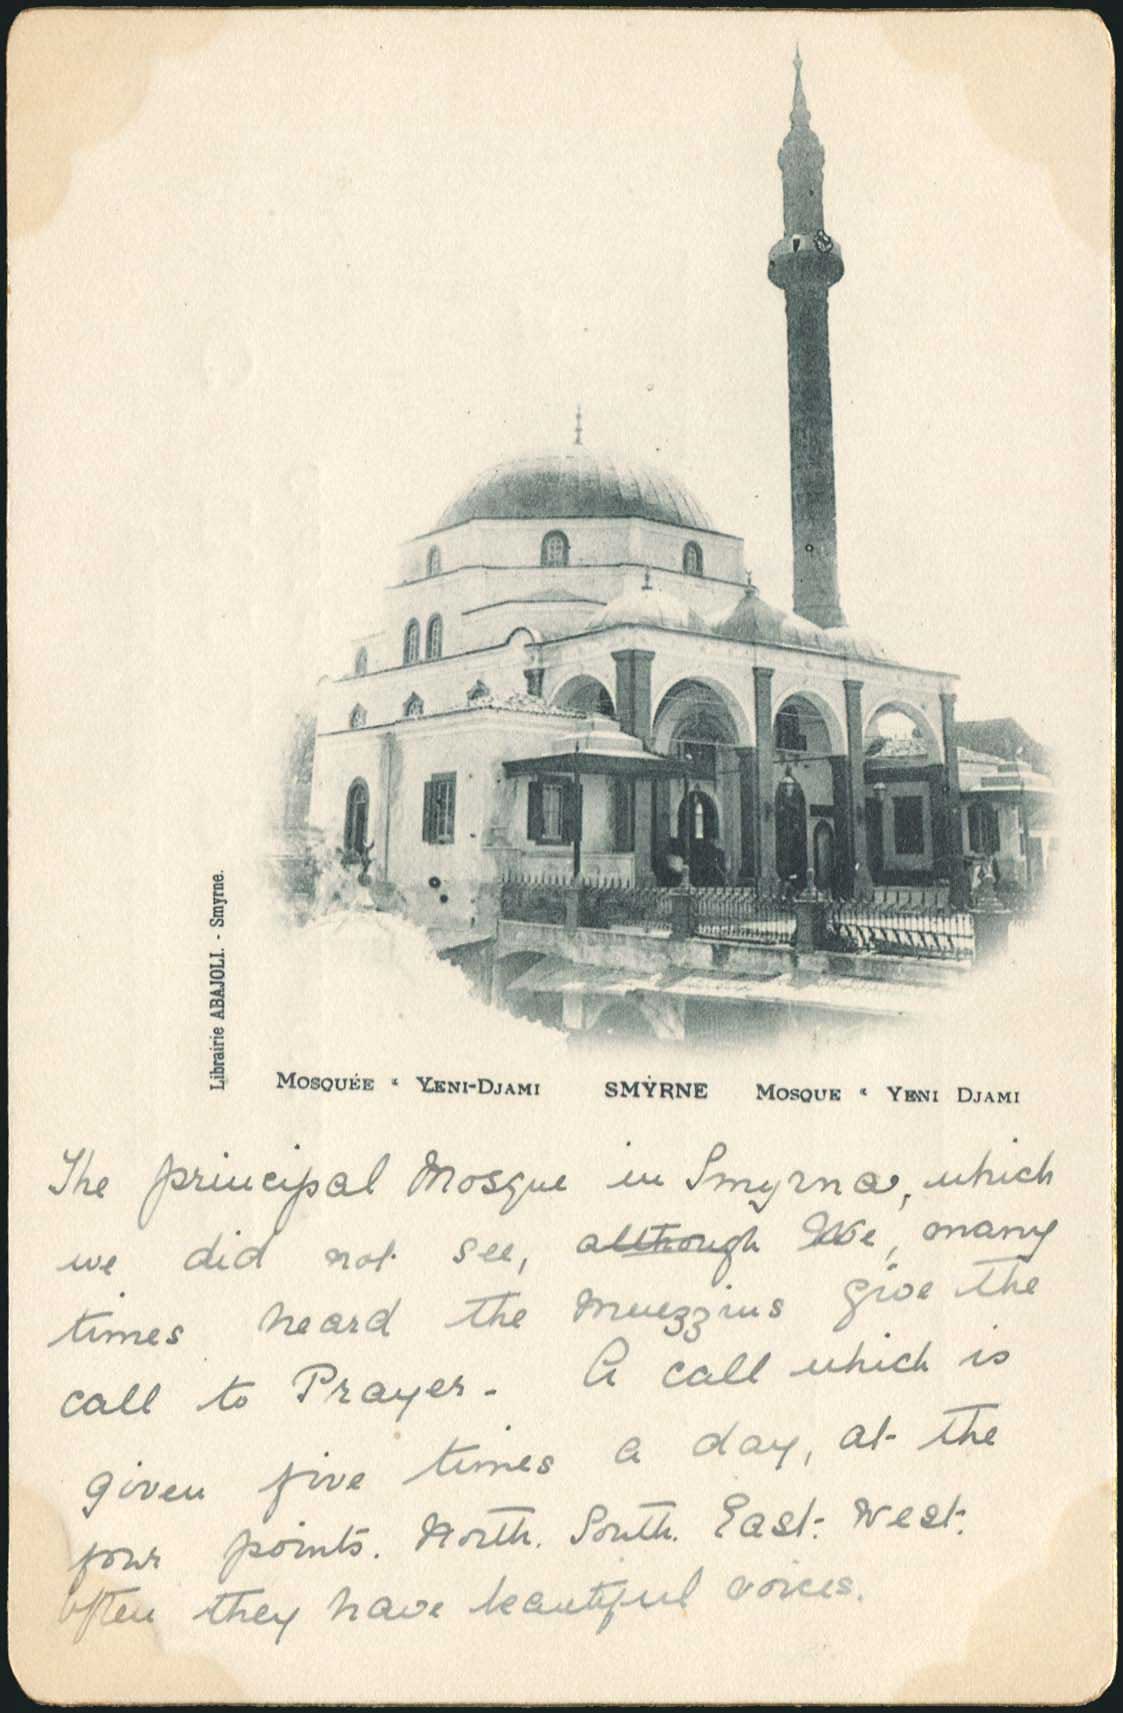 Librairie ABAJOLI. - Smyrne.
MOSQUÉE « YENI-DJAMI SMYRNE MOSQUE « YENI DJAMI
The principal Mosque in Smyrna, which
we did not see, although We, many
times heard the Muezzins give the
call to Prayer. A call which is
given five times a day, at the
four points. North. South. East. West.
often they have beautiful voices.